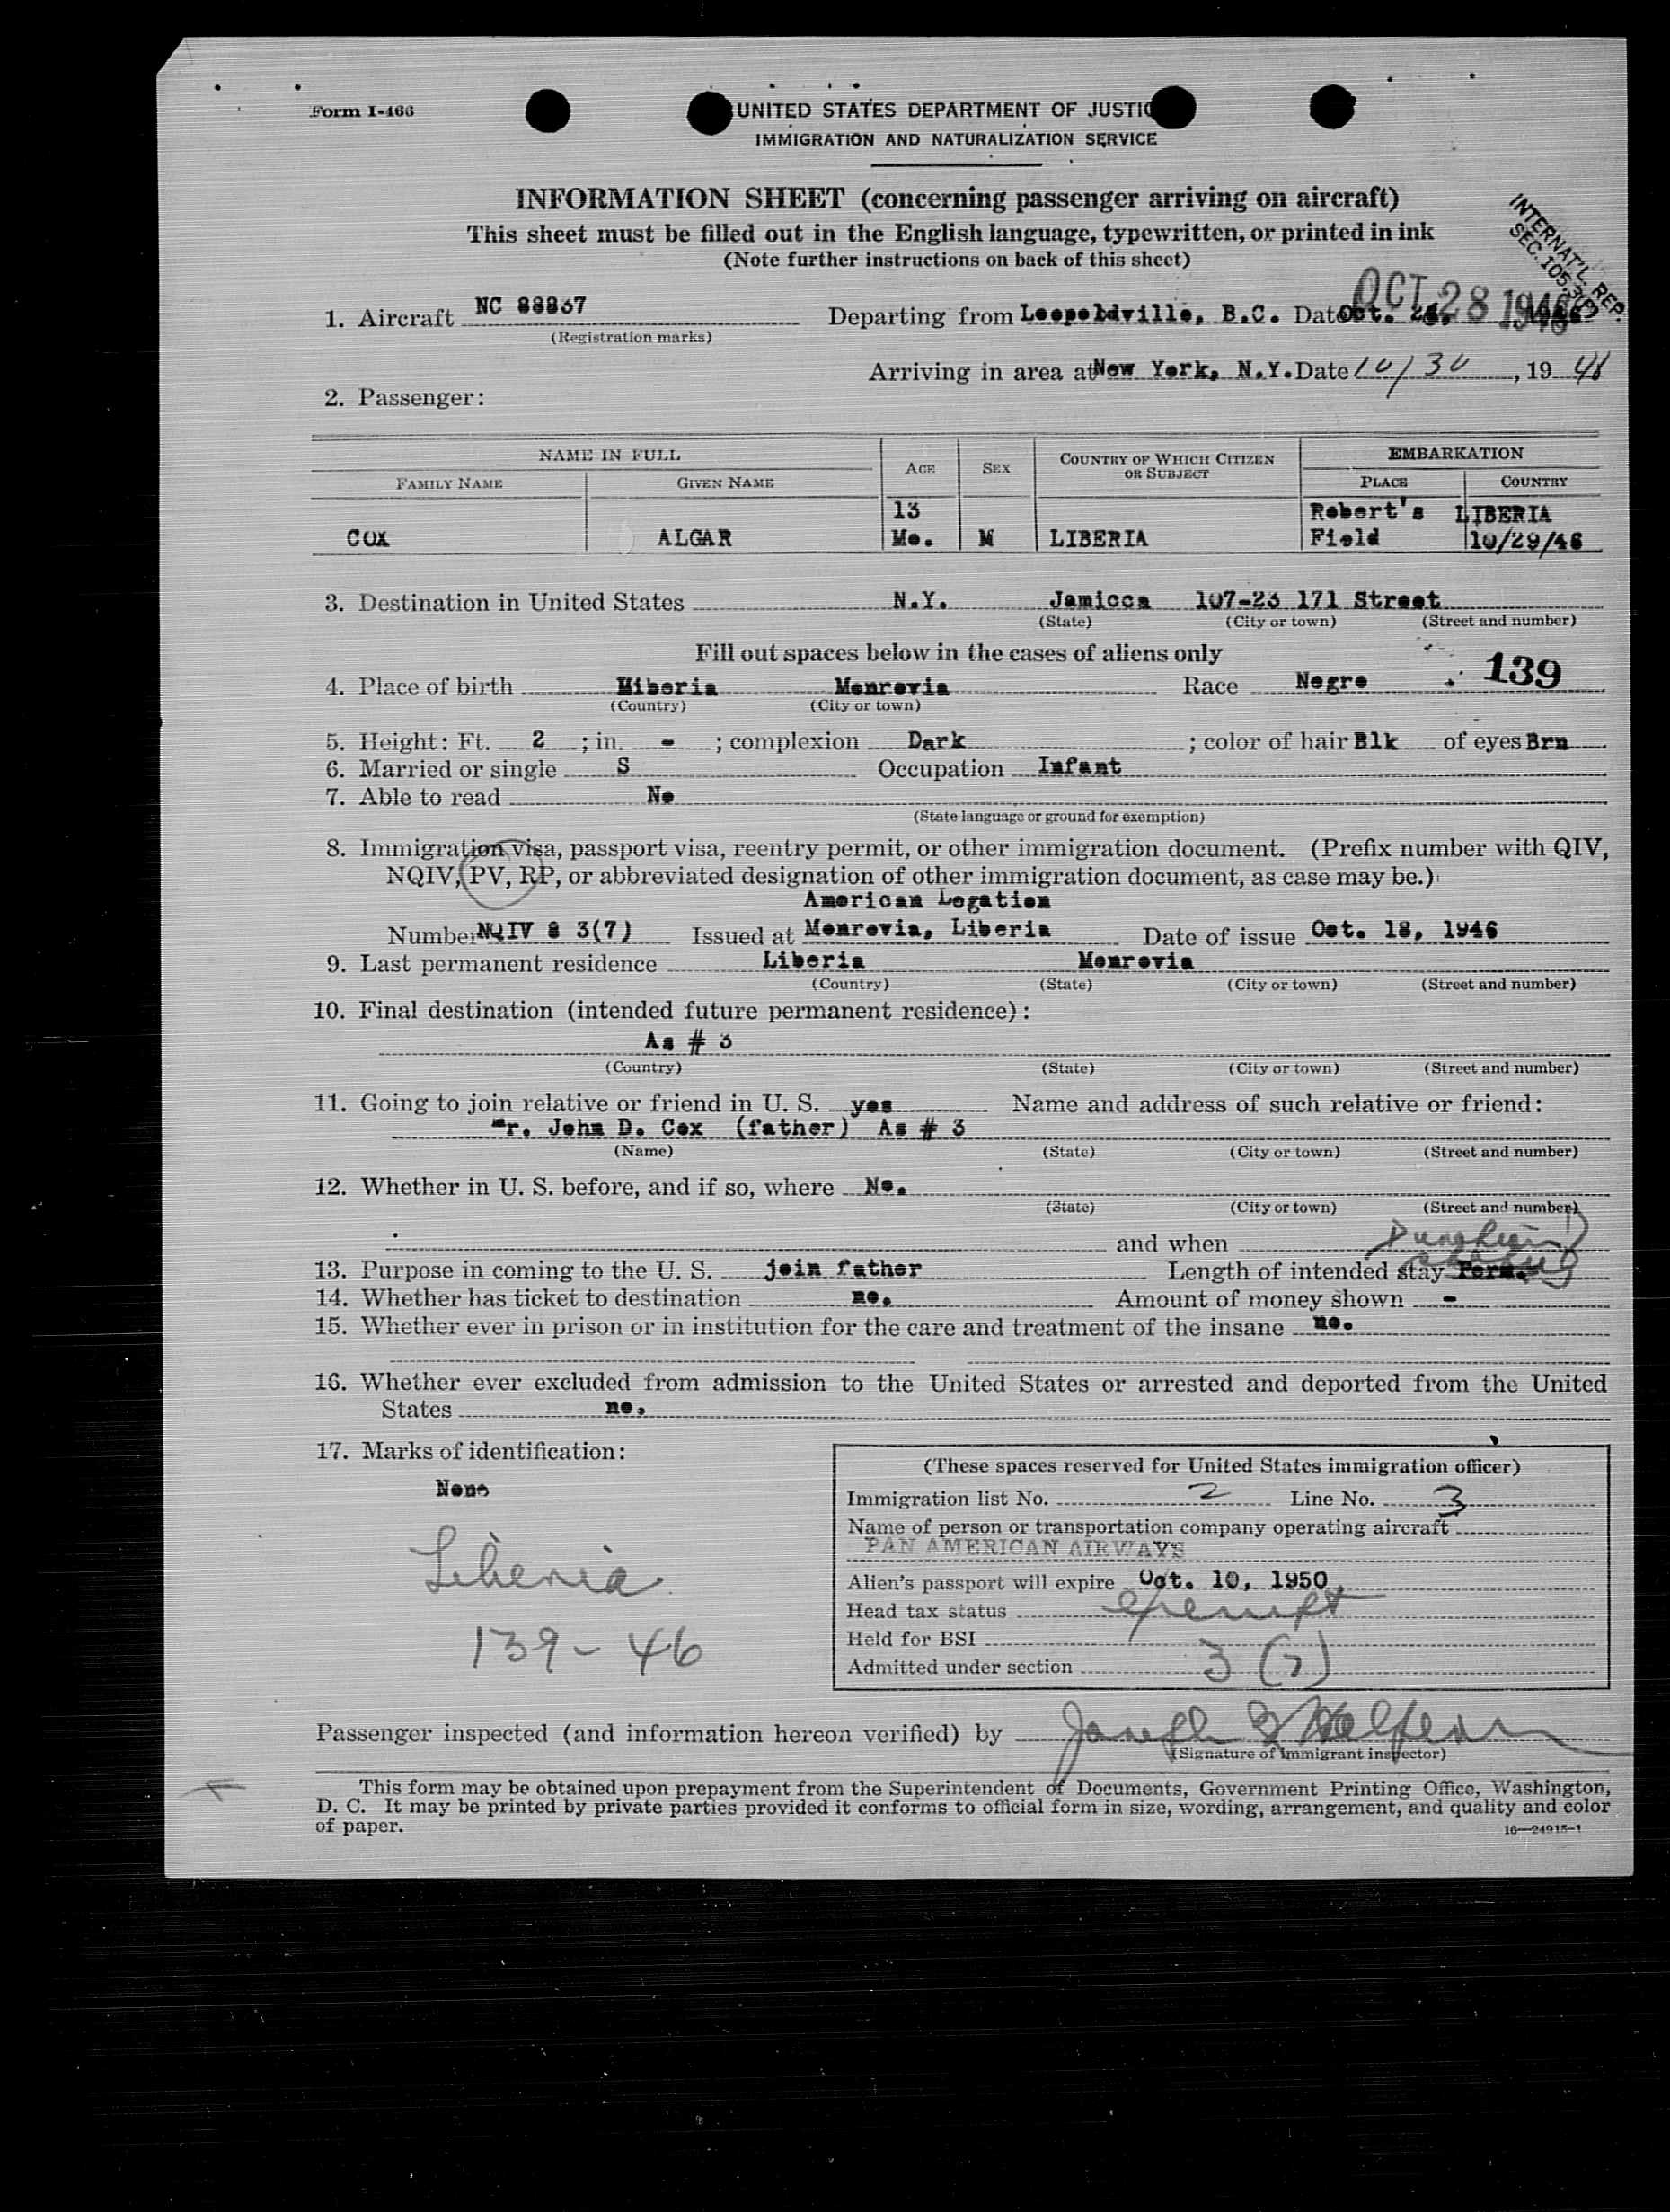 Form I-466
UNITED STATES DEPARTMENT OF JUSTIC
IMMIGRATION AND NATURALIZATION SERVICE
INFORMATION SHEET (concerning passenger arriving on aircraft)
This sheet must be filled out in the English language, typewritten, or printed in ink
(Note further instructions on back of this sheet)
INTERNAT'L. REP.
SEC. 105.3(P)
OCT 28 1946
1. Aircraft NC 88837 Departing from Leopoldville, B.C. Date Oct.
(Registration marks)
Arriving in area at New York, N.Y. Date 10/30, 19 46
2. Passenger:
NAME IN FULL AGE SEX COUNTRY OF WHICH CITIZEN OR SUBJECT EMBARKATION
FAMILY NAME GIVEN NAME PLACE COUNTRY
13 Robert's LIBERIA
COX ALGAR Mo. M LIBERIA Field 10/29/46
3. Destination in United States N.Y. Jamicca 107-23 171 Street
(State) (City or town) (Street and number)
Fill out spaces below in the cases of aliens only
139
4. Place of birth Liberia Monrovia Race Negro
(Country) (City or town)
5. Height: Ft. 2 ; in. - ; complexion Dark ; color of hair Blk of eyes Brn
6. Married or single S Occupation Infant
7. Able to read No
(State language or ground for exemption)
8. Immigration visa, passport visa, reentry permit, or other immigration document. (Prefix number with QIV,
NQIV, PV, RP, or abbreviated designation of other immigration document, as case may be.)
American Legation
Number NQIV & 3(7) Issued at Monrovia, Liberia Date of issue Oct. 18, 1946
9. Last permanent residence Liberia Monrovia
(Country) (State) (City or town) (Street and number)
10. Final destination (intended future permanent residence):
As # 3
(Country) (State) (City or town) (Street and number)
11. Going to join relative or friend in U. S. yes Name and address of such relative or friend:
Mr. John D. Cox (father) As # 3
(Name) (State) (City or town) (Street and number)
12. Whether in U. S. before, and if so, where No.
(State) (City or town) (Street and number)
and when
13. Purpose in coming to the U. S. join father Length of intended stay Perm.
14. Whether has ticket to destination no. Amount of money shown -
15. Whether ever in prison or in institution for the care and treatment of the insane no.
16. Whether ever excluded from admission to the United States or arrested and deported from the United
States no.
17. Marks of identification:
None
Liberia
139-46
(These spaces reserved for United States immigration officer)
Immigration list No. 2 Line No. 3
Name of person or transportation company operating aircraft
PAN AMERICAN AIRWAYS
Alien's passport will expire Oct. 10, 1950
Head tax status exempt
Held for BSI
Admitted under section 3 (7)
Passenger inspected (and information hereon verified) by Joseph
(Signature of immigrant inspector)
This form may be obtained upon prepayment from the Superintendent of Documents, Government Printing Office, Washington,
D. C. It may be printed by private parties provided it conforms to official form in size, wording, arrangement, and quality and color
of paper.
16—24915-1